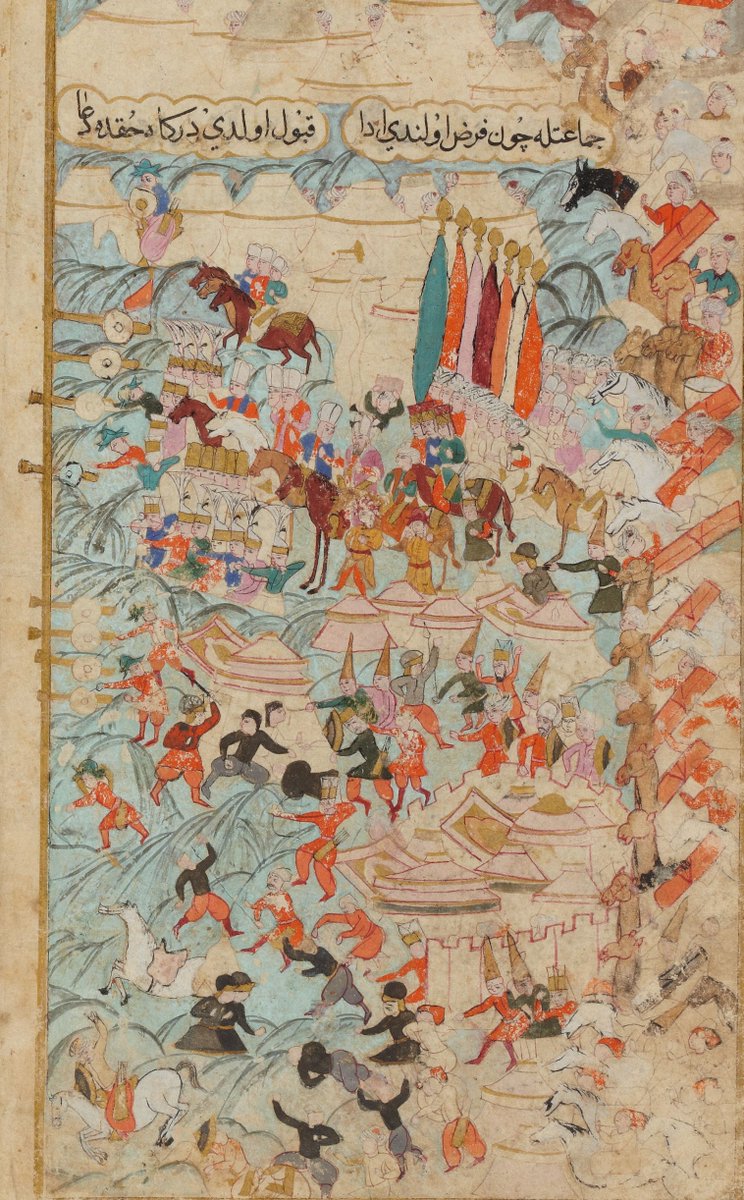 جماعتله چون فرض اولندي ادا قبول اولدي دركاه حقده دعا